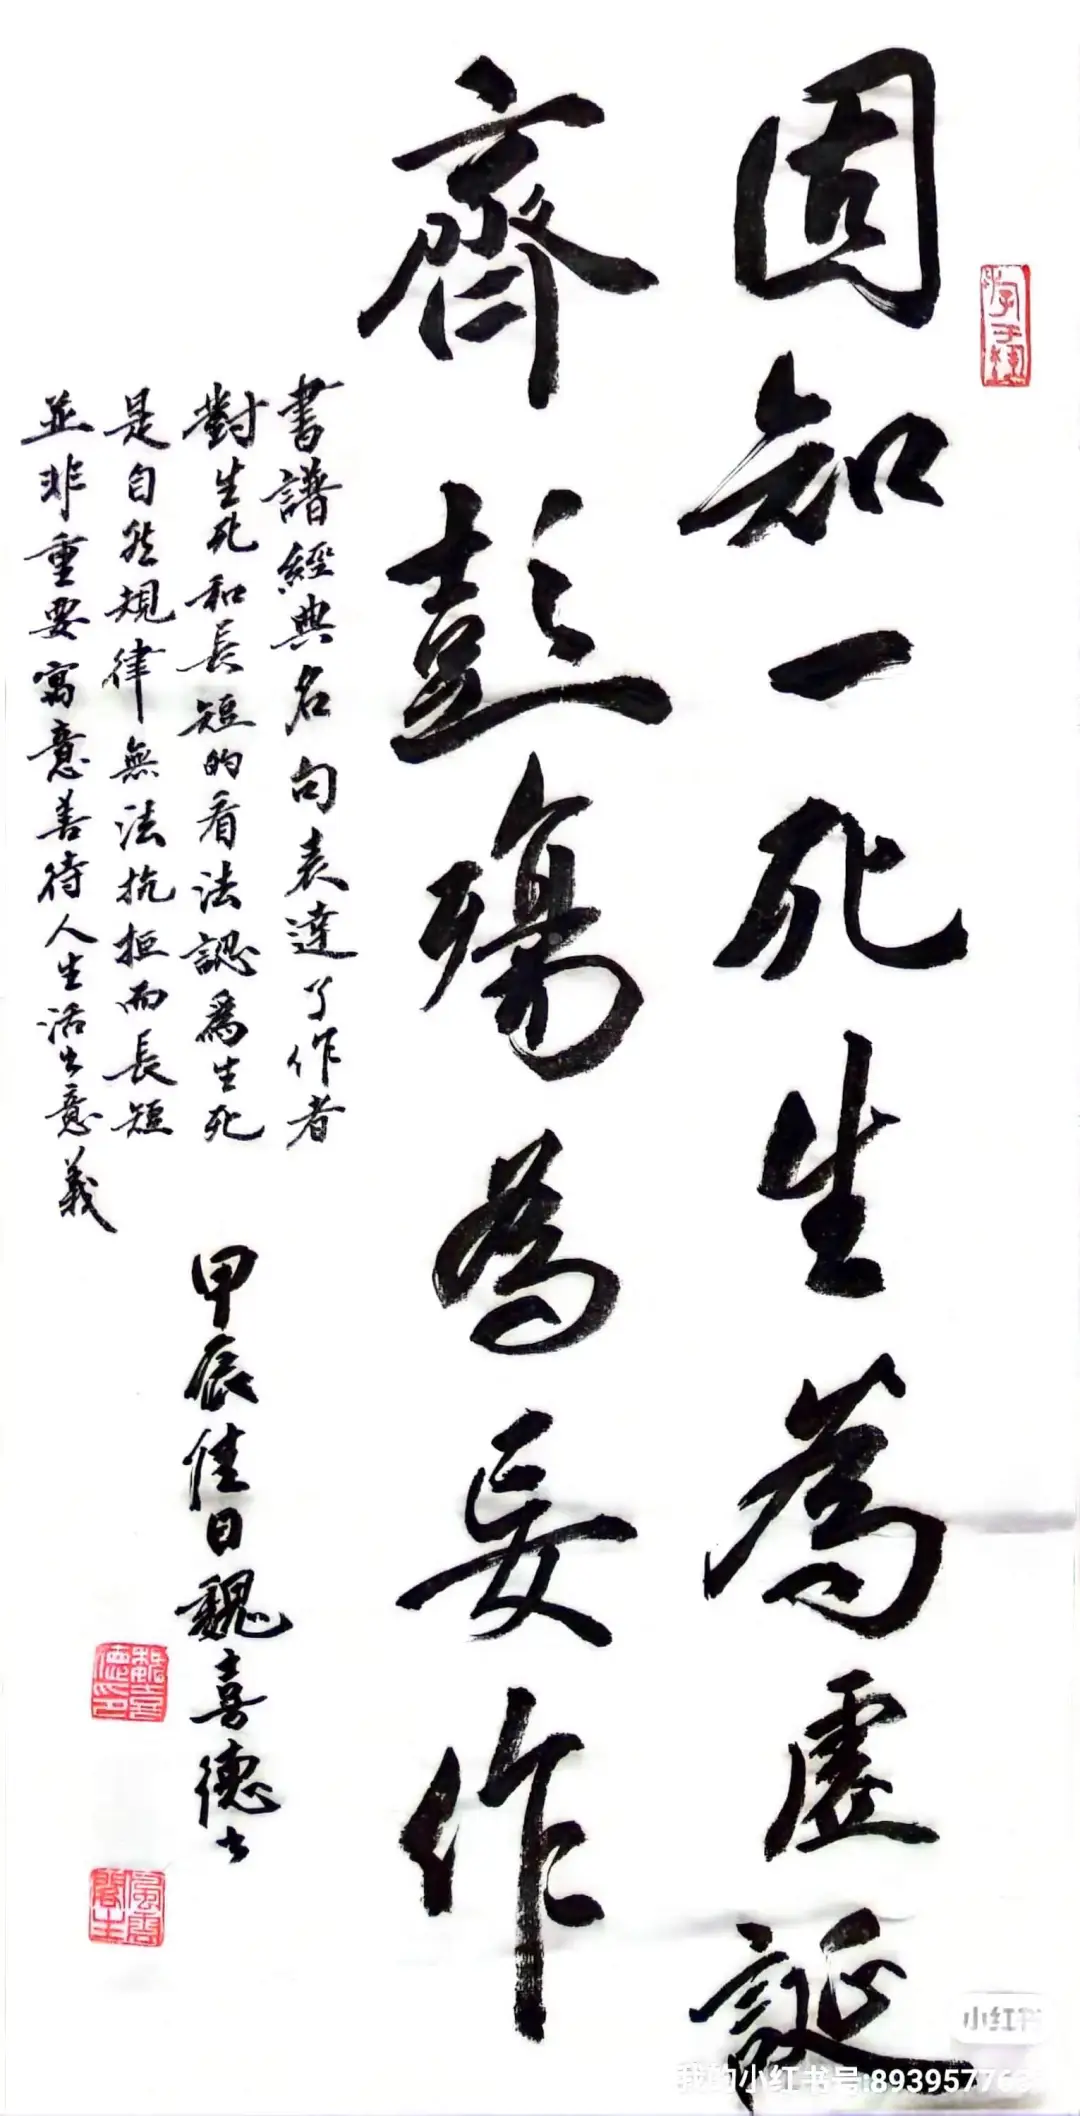 固知一死生為虛誕
齊彭殤為妄作
書譜經典名句表達了作者
對生死和長短的看法認爲生死
是自然規律無法抗拒而長短
並非重要寓意善待人生活出意義
甲辰佳日魏喜德书
魏喜德印
小红书
我的小红书号:893957763